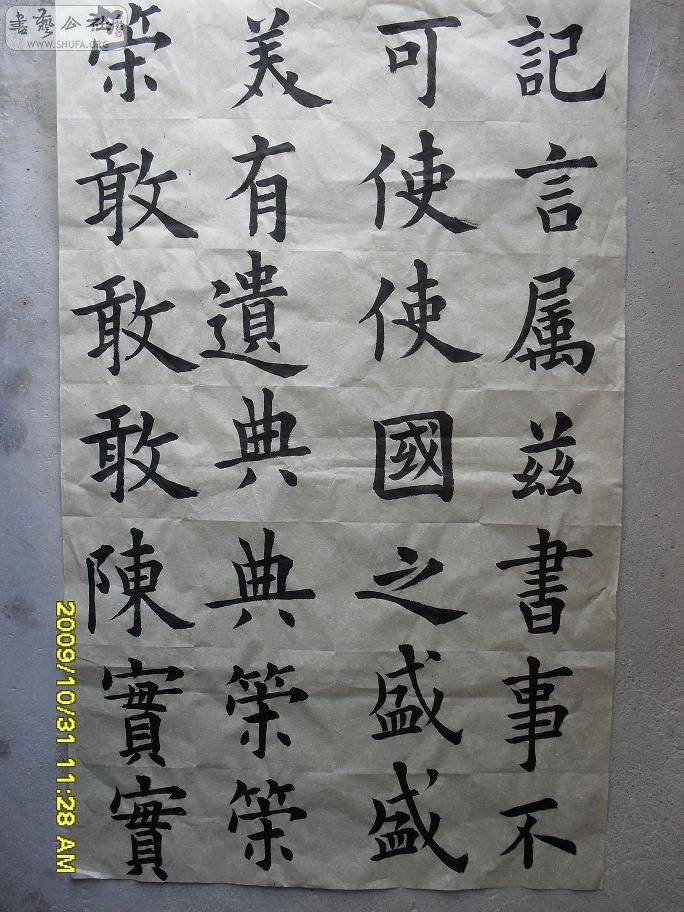 記言属兹書事不
可使使國之盛盛
美有遺典典策策
策敢敢敢陳實實
書藝公社
WWW.SHUFA.ORG
2009/10/31 11:28 AM